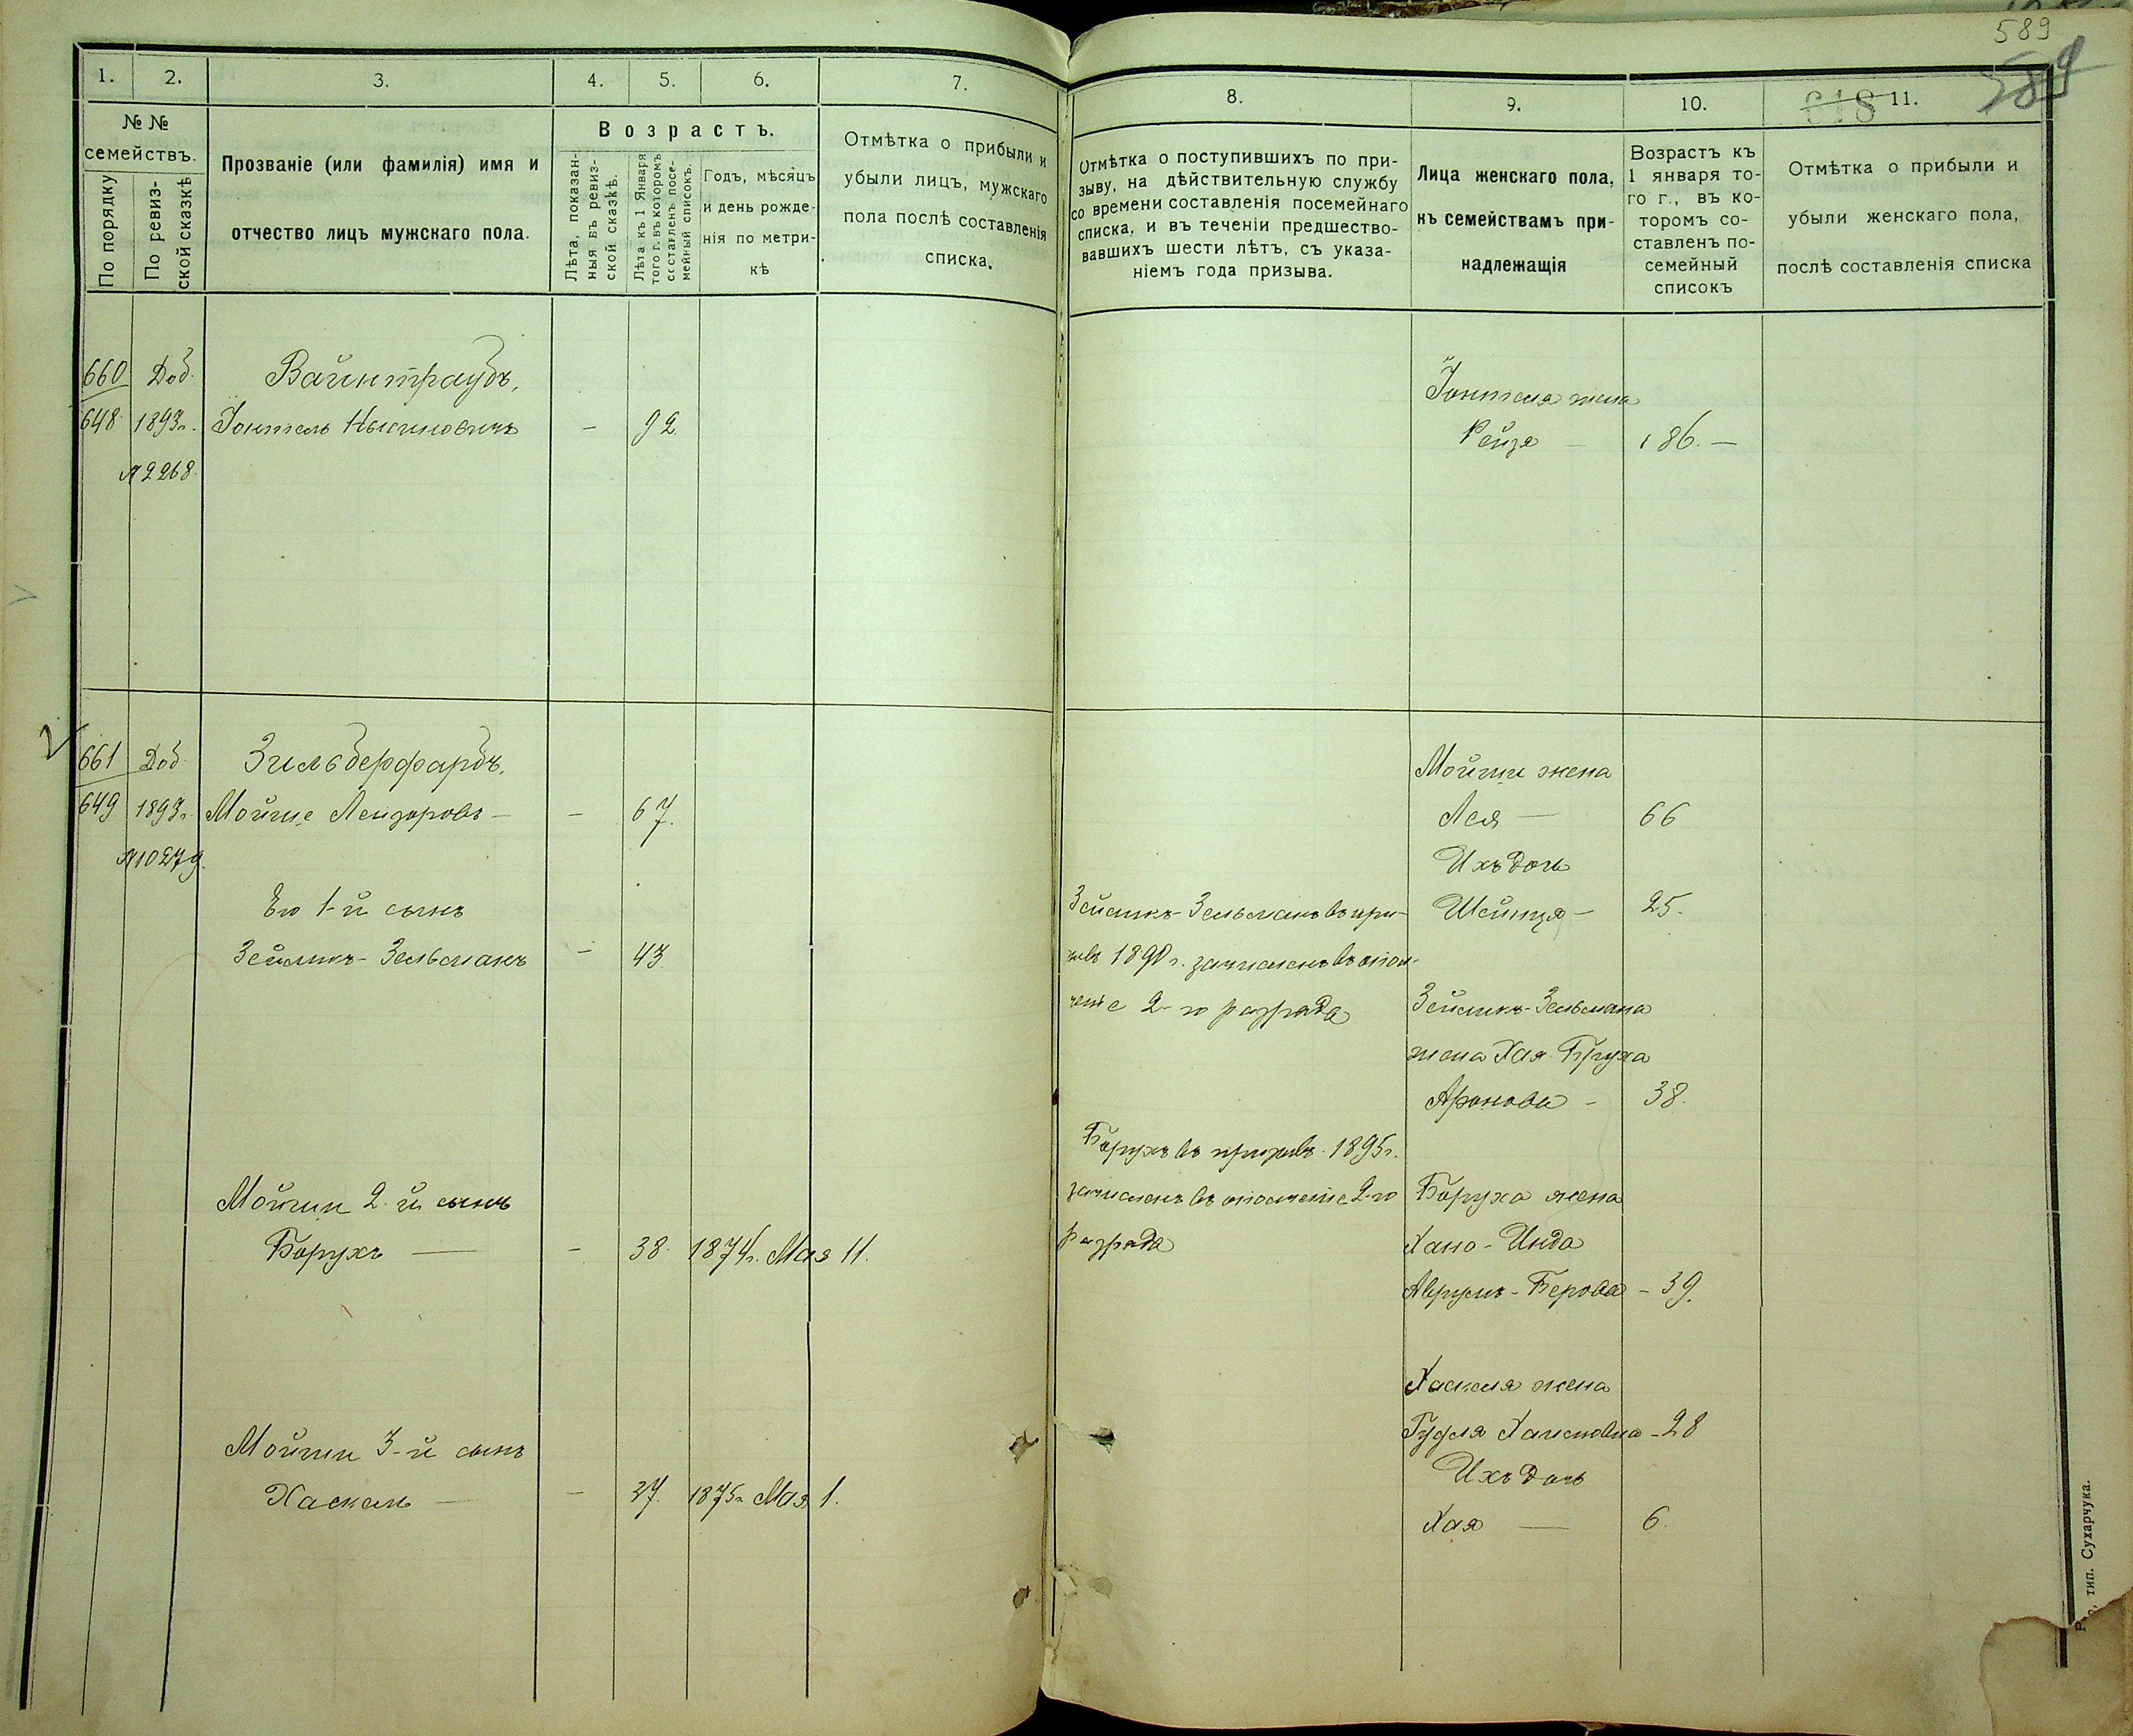 589
589
618
1.
2.
3.
4.
5.
6.
7.
№ №
семействъ.
По порядку
По ревиз-
ской сказкѣ
Прозваніе (или фамилія) имя и
отчество лицъ мужскаго пола.
Возрастъ.
Лѣта, показан-
ныя въ ревиз-
ской сказкѣ.
Лѣта къ 1 Января
того г. въ которомъ
составленъ посе-
мейный списокъ.
Годъ, мѣсяцъ
и день рожде-
нія по метри-
кѣ
Отмѣтка о прибыли и
убыли лицъ, мужскаго
пола послѣ составленія
списка.
660 Доб. Вайнтраубъ,
648 1893г. — 92.
№ 2268.
661 Доб. Зильберфарбъ.
649 1893г. Мойше Лейзоровъ — — 67.
№ 10279.
Его 1-й сынъ
Зейликъ-Зельманъ — 43
Мойши 2-й сынъ
Борухъ — — 38. 1874г. Мая 11.
Мойши 3-й сынъ
Хаскель — — 37. 1875г. Мая 1.
8.
9.
10.
11.
Отмѣтка о поступившихъ по при-
зыву, на дѣйствительную службу
со времени составленія посемейнаго
списка, и въ теченіи предшество-
вавшихъ шести лѣтъ, съ указа-
ніемъ года призыва.
Лица женскаго пола,
къ семействамъ при-
надлежащія
Возрастъ къ
1 января то-
го г., въ ко-
торомъ со-
ставленъ по-
семейный
списокъ
Отмѣтка о прибыли и
убыли женскаго пола,
послѣ составленія списка
жена
Рейзя — 86. —
Мойши жена
Лея — 66
Ихъ дочь
Зейликъ-Зельманъ въ при-
Шейндя — 25.
зывъ 1890 г. зачисленъ въ опол-
ченіе 2-го разряда
Зейликъ-Зельмана
жена Хая-Бруха
Аронова — 38.
Борухъ въ призывъ 1895г.
зачисленъ въ ополченіе 2-го
разряда
Боруха жена
Хано-Инда
Аврумъ-Берова — 39.
Хаскеля жена
Гудля Хаимовна — 28
Ихъ дочь
Хая — 6.
тип. Сухарчука.